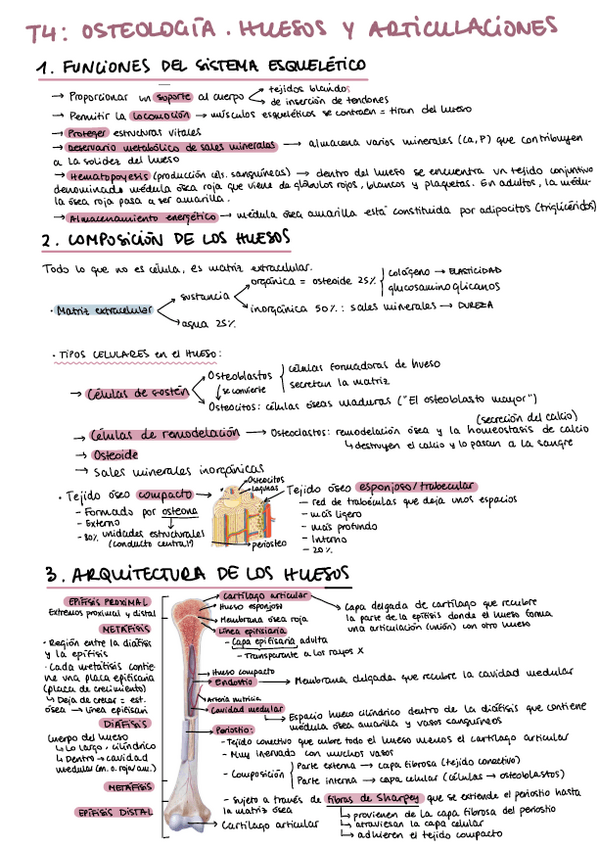 T4: OSTEOLOGÍA. HUESOS Y ARTICULACIONES
1. FUNCIONES DEL SISTEMA ESQUELÉTICO
→ Proporcionar un soporte al cuerpo → tejidos blandos
→ de inserción de tendones
→ Permitir la locomoción → músculos esqueléticos se contraen = tiran del hueso
→ Proteger estructuras vitales
→ Reservorio metabólico de sales minerales → almacena varios minerales (Ca, P) que contribuyen
a la solidez del hueso
→ Hematopoyesis (producción céls. sanguíneas) → dentro del hueso se encuentra un tejido conjuntivo
denominado médula ósea roja que viene de glóbulos rojos, blancos y plaquetas. En adultos, la médu-
la ósea roja pasa a ser amarilla.
→ Almacenamiento energético → médula ósea amarilla está constituida por adipocitos (triglicéridos)
2. COMPOSICIÓN DE LOS HUESOS
Todo lo que no es célula, es matriz extracelular.
· Matriz extracelular
sustancia
orgánica = osteoide 25%
colágeno → ELASTICIDAD
glucosaminoglicanos
inorgánica 50%: sales minerales → DUREZA
agua 25%
· TIPOS CELULARES en el HUESO:
→ Células de sostén
Osteoblastos
células formadoras de hueso
secretan la matriz
(se convierte
Osteocitos: células óseas maduras ("El osteoblasto mayor")
(secreción del calcio)
→ Células de remodelación → Osteoclastos: remodelación ósea y la homeostasis de calcio
↳ destruyen el calcio y lo pasan a la sangre
→ Osteoide
→ Sales minerales inorgánicas
· Tejido óseo compacto
- Formado por osteona
- Externo
- 80% unidades estructurales
(conducto central)
Osteocitos
lagunas
periosteo
Tejido óseo esponjoso/trabecular
- red de trabéculas que deja unos espacios
- más ligero
- más profundo
- Interno
- 20%
3. ARQUITECTURA DE LOS HUESOS
EPÍFISIS PROXIMAL
Extremos proximal y distal
METÁFISIS
· Región entre la diáfisis
y la epífisis
· Cada metáfisis contie-
ne una placa epifisaria
(placa de crecimiento)
↳ Deja de crecer = est.
ósea → línea epifisari
DIÁFISIS
Cuerpo del hueso
↳ Lo largo, cilíndrico
↳ Dentro → cavidad
medular (m. o. roja/am.)
METÁFISIS
EPÍFISIS DISTAL
Cartílago articular
Hueso esponjoso
Membrana ósea roja
Línea epifisiaria
- Capa epifisaria adulta
- Transparente a los rayos X
Capa delgada de cartílago que recubre
la parte de la epífisis donde el hueso forma
una articulación (unión) con otro hueso
Hueso compacto
Endostio → Membrana delgada que recubre la cavidad medular
Arteria nutricia
Cavidad medular
↳ Espacio hueco cilíndrico dentro de la diáfisis que contiene
médula ósea amarilla y vasos sanguíneos
Periostio:
- Tejido conectivo que cubre todo el hueso menos el cartílago articular
- Muy inervado con muchos vasos
- Composición
Parte externa → capa fibrosa (tejido conectivo)
Parte interna → capa celular (células → osteoblastos)
- Sujeto a través de fibras de Sharpey que se extiende el periostio hasta
la matriz ósea
↳ provienen de la capa fibrosa del periostio
↳ atraviesan la capa celular
↳ adhieren el tejido compacto
Cartílago articular